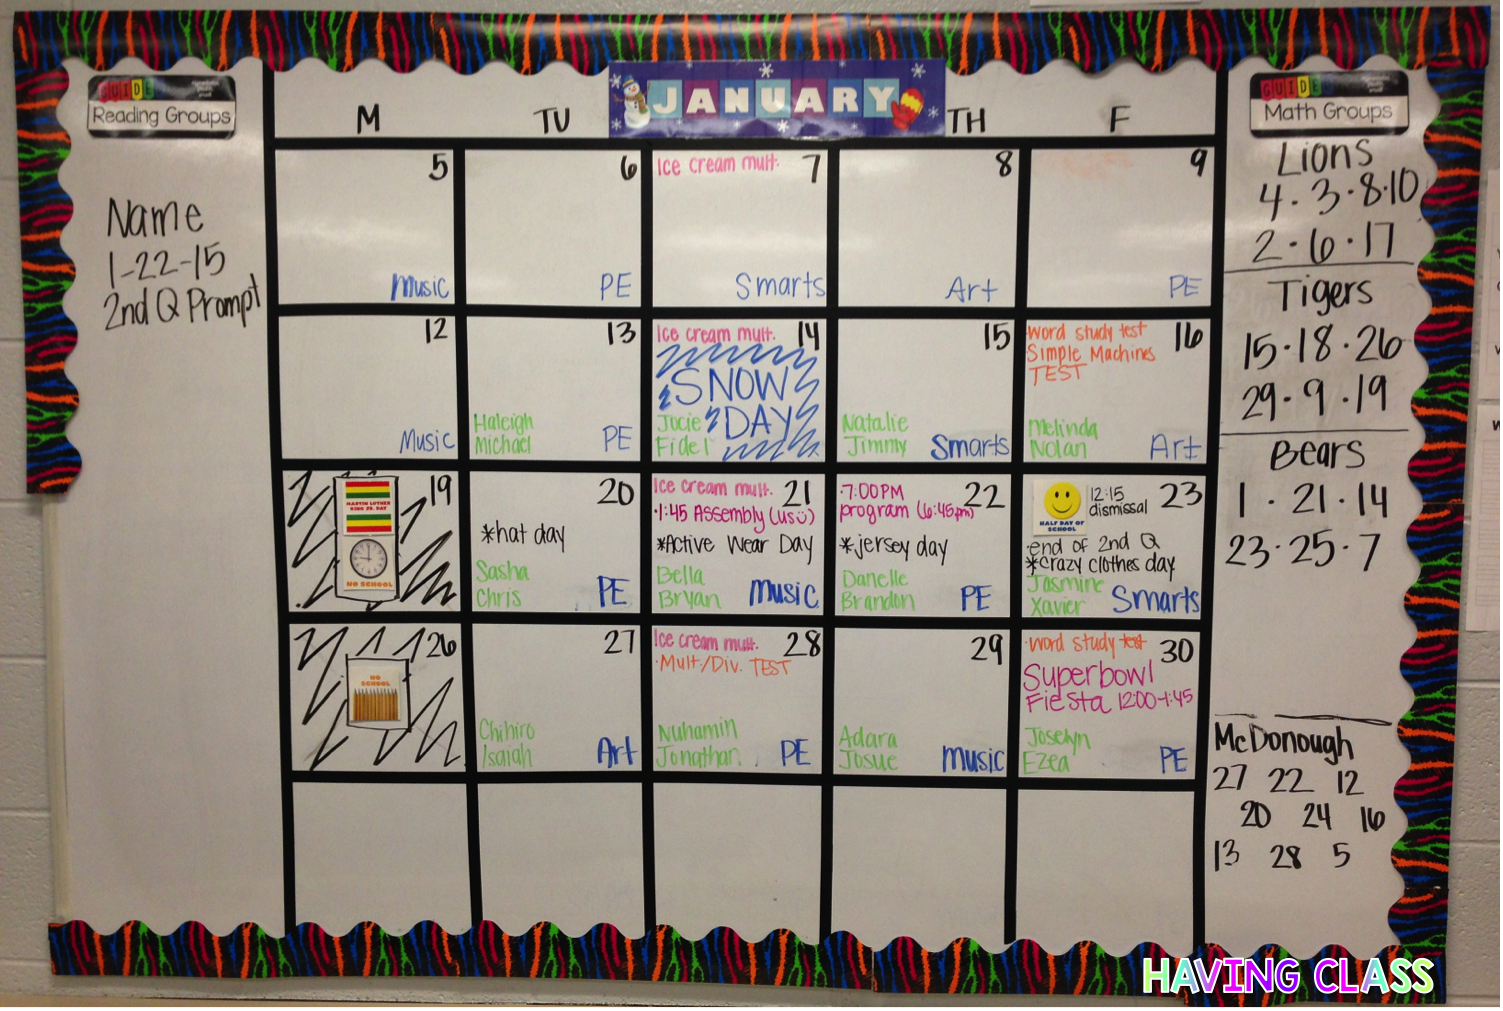 GUIDED
Reading Groups
Name
1-22-15
2nd Q Prompt
JANUARY
M
TU
TH
F
5
Music
6
PE
Ice cream mult. 7
Smarts
8
Art
9
PE
12
Music
13
Haleigh
Michael PE
Ice cream mult. 14
SNOW
DAY
Jocie
Fidel
15
Natalie
Jimmy Smarts
word study test 16
Simple Machines
TEST
Melinda
Nolan Art
19
MARTIN LUTHER
KING JR. DAY
NO SCHOOL
20
*hat day
Sasha
Chris PE
Ice cream mult. 21
·1:45 Assembly (us)
*Active Wear Day
Bella
Bryan Music
·7:00PM 22
program (6:45pm)
*jersey day
Danelle
Brandon PE
12:15 23
dismissal
HALF DAY OF
SCHOOL
·end of 2nd Q
*crazy clothes day
Jasmine
Xavier Smarts
26
NO
SCHOOL
27
Chihiro
Isaiah Art
Ice cream mult. 28
·Mult./Div. TEST
Nuhamin
Jonathan PE
29
Adara
Josue Music
·word study test 30
Superbowl
Fiesta 12:00-1:45
Joselyn
Ezea PE
GUIDED
Math Groups
Lions
4·3·8·10
2·6·17
Tigers
15·18·26
29·9·19
Bears
1·21·14
23·25·7
McDonough
27 22 12
20 24 16
13 28 5
HAVING CLASS